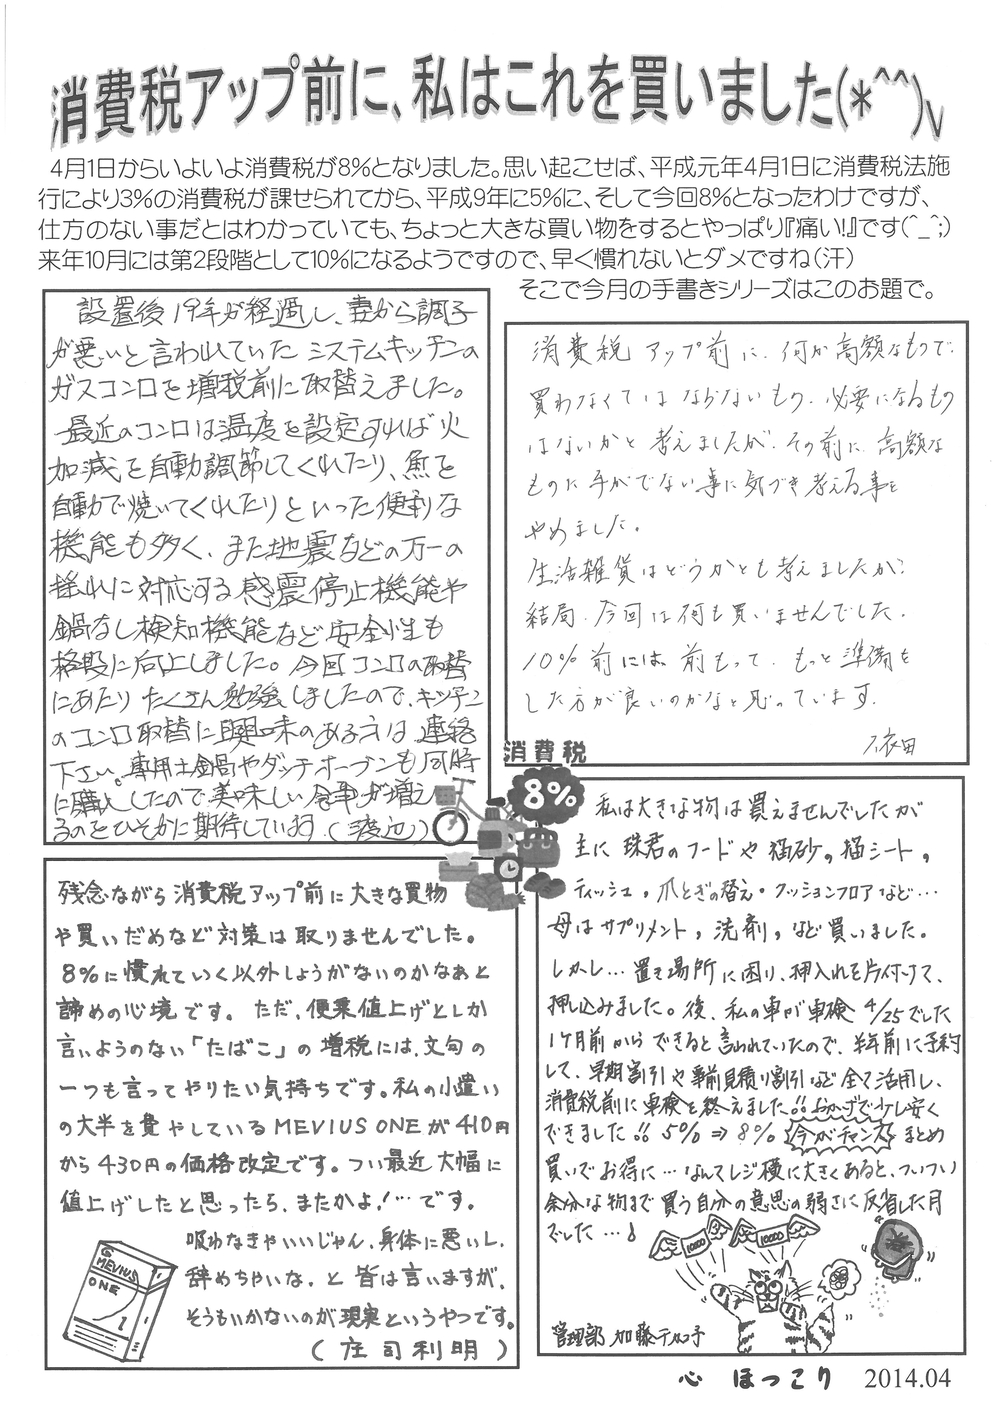 消費税アップ前に、私はこれを買いました(*^^)v
4月1日からいよいよ消費税が8%となりました。思い起こせば、平成元年4月1日に消費税法施
行により3%の消費税が課せられてから、平成9年に5%に、そして今回8%となったわけですが、
仕方のない事だとはわかっていても、ちょっと大きな買い物をするとやっぱり『痛い!』です(^_^;)
来年10月には第2段階として10%になるようですので、早く慣れないとダメですね(汗)
そこで今月の手書きシリーズはこのお題で。
設置後19年が経過し、妻から調子
が悪いと言われていたシステムキッチンの
ガスコンロを増税前に取替えました。
最近のコンロは温度を設定すれば火
加減を自動調節してくれたり、魚を
自動で焼いてくれたりといった便利な
機能も多く、また地震などの万一の
揺れに対応する感震停止機能や
鍋なし検知機能など安全性も
格段に向上しました。今回コンロの取替
にあたりたくさん勉強しましたので、キッチン
のコンロ取替に興味のある方は連絡
下さい。専用土鍋やダッチオーブンも同時
に購入したので美味しい食事が増え
るのをひそかに期待しています(渡辺)
消費税アップ前に、何か高額なもので、
買わなくてはならないもの、必要になるもの
はないかと考えましたが、その前に、高額な
ものに手がでない事に気づき考える事を
やめました。
生活雑貨はどうかとも考えましたが、
結局、今回は何も買いませんでした。
10%前には、前もって、もっと準備を
した方が良いのかなと思っています。
依田
消費税
8%
残念ながら消費税アップ前に大きな買物
や買いだめなど対策は取りませんでした。
8%に慣れていく以外しょうがないのかなぁと
諦めの心境です。ただ、便乗値上げとしか
言いようのない「たばこ」の増税には、文句の
一つも言ってやりたい気持ちです。私の小遣い
の大半を費やしているMEVIUS ONEが410円
から430円の価格改定です。つい最近大幅に
値上げしたと思ったら、またかよ!…です。
吸わなきゃいいじゃん、身体に悪いし、
辞めちゃいな、と皆は言いますが、
そうもいかないのが現実というやつです。
(庄司利明)
MEVIUS
ONE
1
私は大きな物は買えませんでしたが
主に珠君のフードや猫砂，猫シート，
ティッシュ，爪とぎの替え・クッションフロアなど…
母はサプリメント，洗剤，など買いました。
しかし…置き場所に困り、押入れを片付けて、
押し込みました。後、私の車が車検4/25でした
1ヶ月前からできると言われていたので、半年前に予約
して、早期割引や事前見積り割引など全て活用し、
消費税前に車検を終えました!!おかげで少し安く
できました!!5%⇒8%今がチャンスまとめ
買いでお得に…なんてレジ横に大きくあると、ついつい
余分な物まで買う自分の意思の弱さに反省した月
でした…!
10000
10000
管理部 加藤テルコ子
心 ほっこり 2014.04